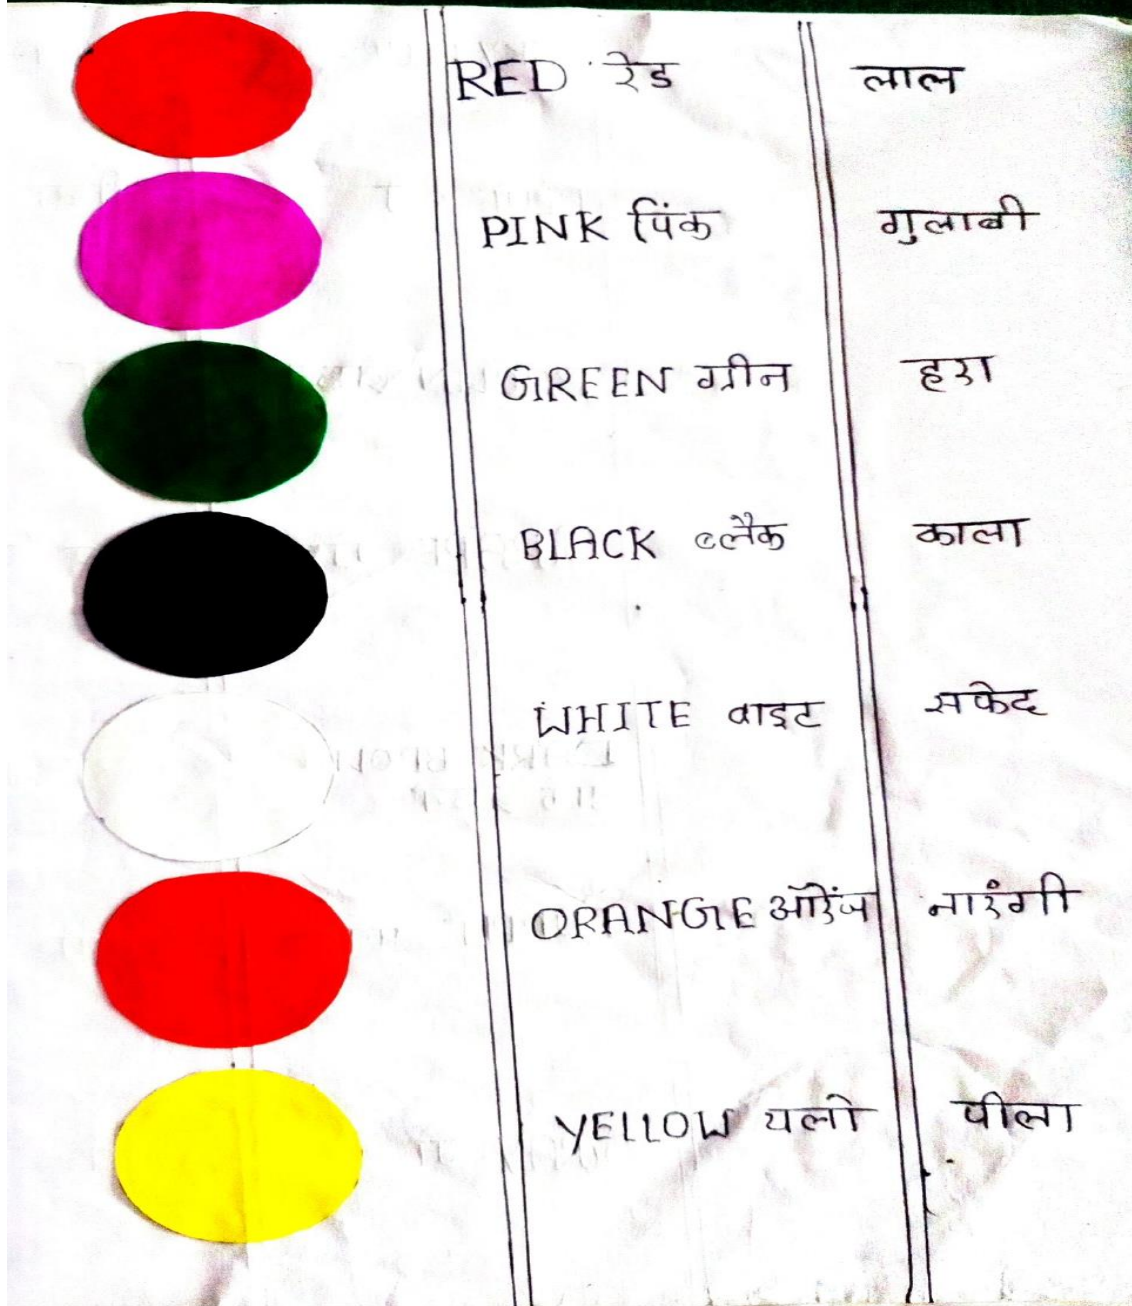 RED रेड लाल
PINK पिंक गुलाबी
GREEN ग्रीन हरा
BLACK ब्लैक काला
WHITE वाइट सफेद
ORANGE ऑरेंज नारंगी
YELLOW यलो पीला